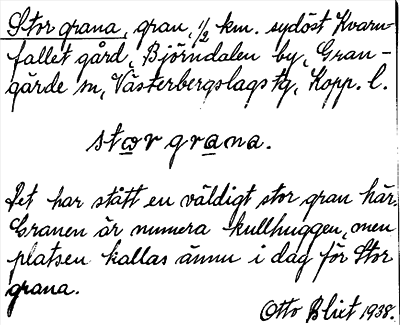 Stor grana, gran, 1/2 km. sydöst Kvarn-
fallet gård, Björndalen by, Gran-
gärde sn, Västerbergslags tg, Kopp. l.
stor grana.
Det har stått en väldigt stor gran här.
Granen är numera kullhuggen, men
platsen kallas ännu i dag för Stor
grana.
Otto Blixt 1938.